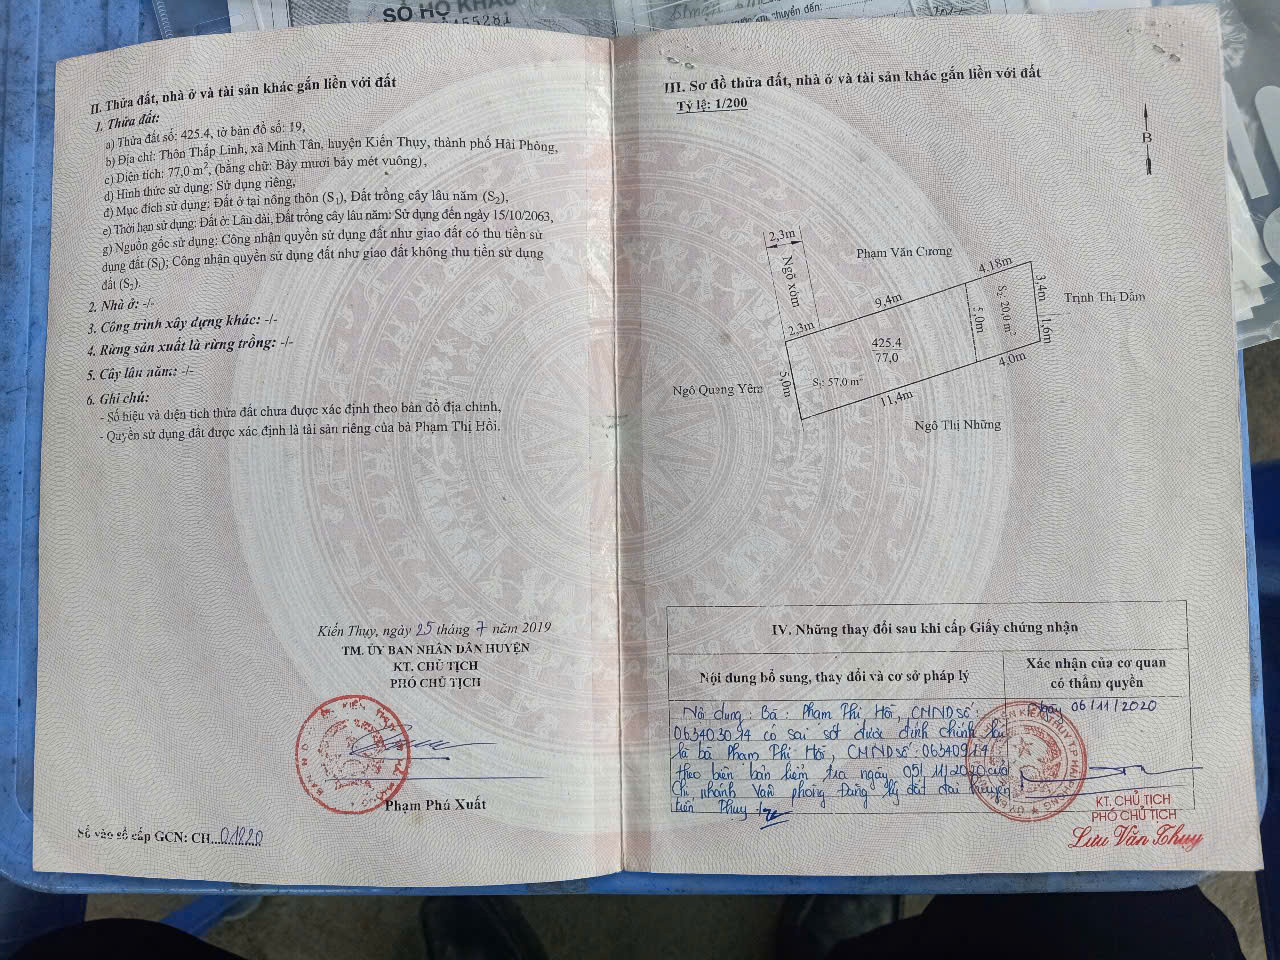 SỔ HỘ KHẨU
455281
chuyển đến:
II. Thửa đất, nhà ở và tài sản khác gắn liền với đất
1. Thửa đất:
a) Thửa đất số: 425.4, tờ bản đồ số: 19,
b) Địa chỉ: Thôn Thấp Linh, xã Minh Tân, huyện Kiến Thụy, thành phố Hải Phòng,
c) Diện tích: 77,0 m², (bằng chữ: Bảy mươi bảy mét vuông),
d) Hình thức sử dụng: Sử dụng riêng,
đ) Mục đích sử dụng: Đất ở tại nông thôn (S₁), Đất trồng cây lâu năm (S₂),
e) Thời hạn sử dụng: Đất ở: Lâu dài, Đất trồng cây lâu năm: Sử dụng đến ngày 15/10/2063,
g) Nguồn gốc sử dụng: Công nhận quyền sử dụng đất như giao đất có thu tiền sử
dụng đất (S₁); Công nhận quyền sử dụng đất như giao đất không thu tiền sử dụng
đất (S₂).
2. Nhà ở: -/-
3. Công trình xây dựng khác: -/-
4. Rừng sản xuất là rừng trồng: -/-
5. Cây lâu năm: -/-
6. Ghi chú:
- Số hiệu và diện tích thửa đất chưa được xác định theo bản đồ địa chính,
- Quyền sử dụng đất được xác định là tài sản riêng của bà Phạm Thị Hồi.
Kiến Thụy, ngày 25 tháng 7 năm 2019
TM. ỦY BAN NHÂN DÂN HUYỆN
KT. CHỦ TỊCH
PHÓ CHỦ TỊCH
Phạm Phú Xuất
Số vào sổ cấp GCN: CH...01220
III. Sơ đồ thửa đất, nhà ở và tài sản khác gắn liền với đất
Tỷ lệ: 1/200
B
2,3m
Ngõ xóm
Phạm Văn Cương
4,18m
3,4m
Trịnh Thị Dầm
9,4m
S₂: 20,0 m²
5,0m
1,6m
2,3m
425.4
77,0
4,0m
Ngô Quang Yêm
5,0m
S₁: 57,0 m²
11,4m
Ngô Thị Những
IV. Những thay đổi sau khi cấp Giấy chứng nhận
Nội dung bổ sung, thay đổi và cơ sở pháp lý
Xác nhận của cơ quan
có thẩm quyền
Nội dung: Bà: Phạm Thị Hồi, CMND số:
có sai sót được đính chính
là bà Phạm Thị Hồi, CMND số:
theo biên bản kiểm tra ngày 05/11/2020 của
Chi nhánh Văn phòng Đăng ký đất đai huyện
Kiến Thụy
Ngày 06/11/2020
KT. CHỦ TỊCH
PHÓ CHỦ TỊCH
Lưu Văn Thụy